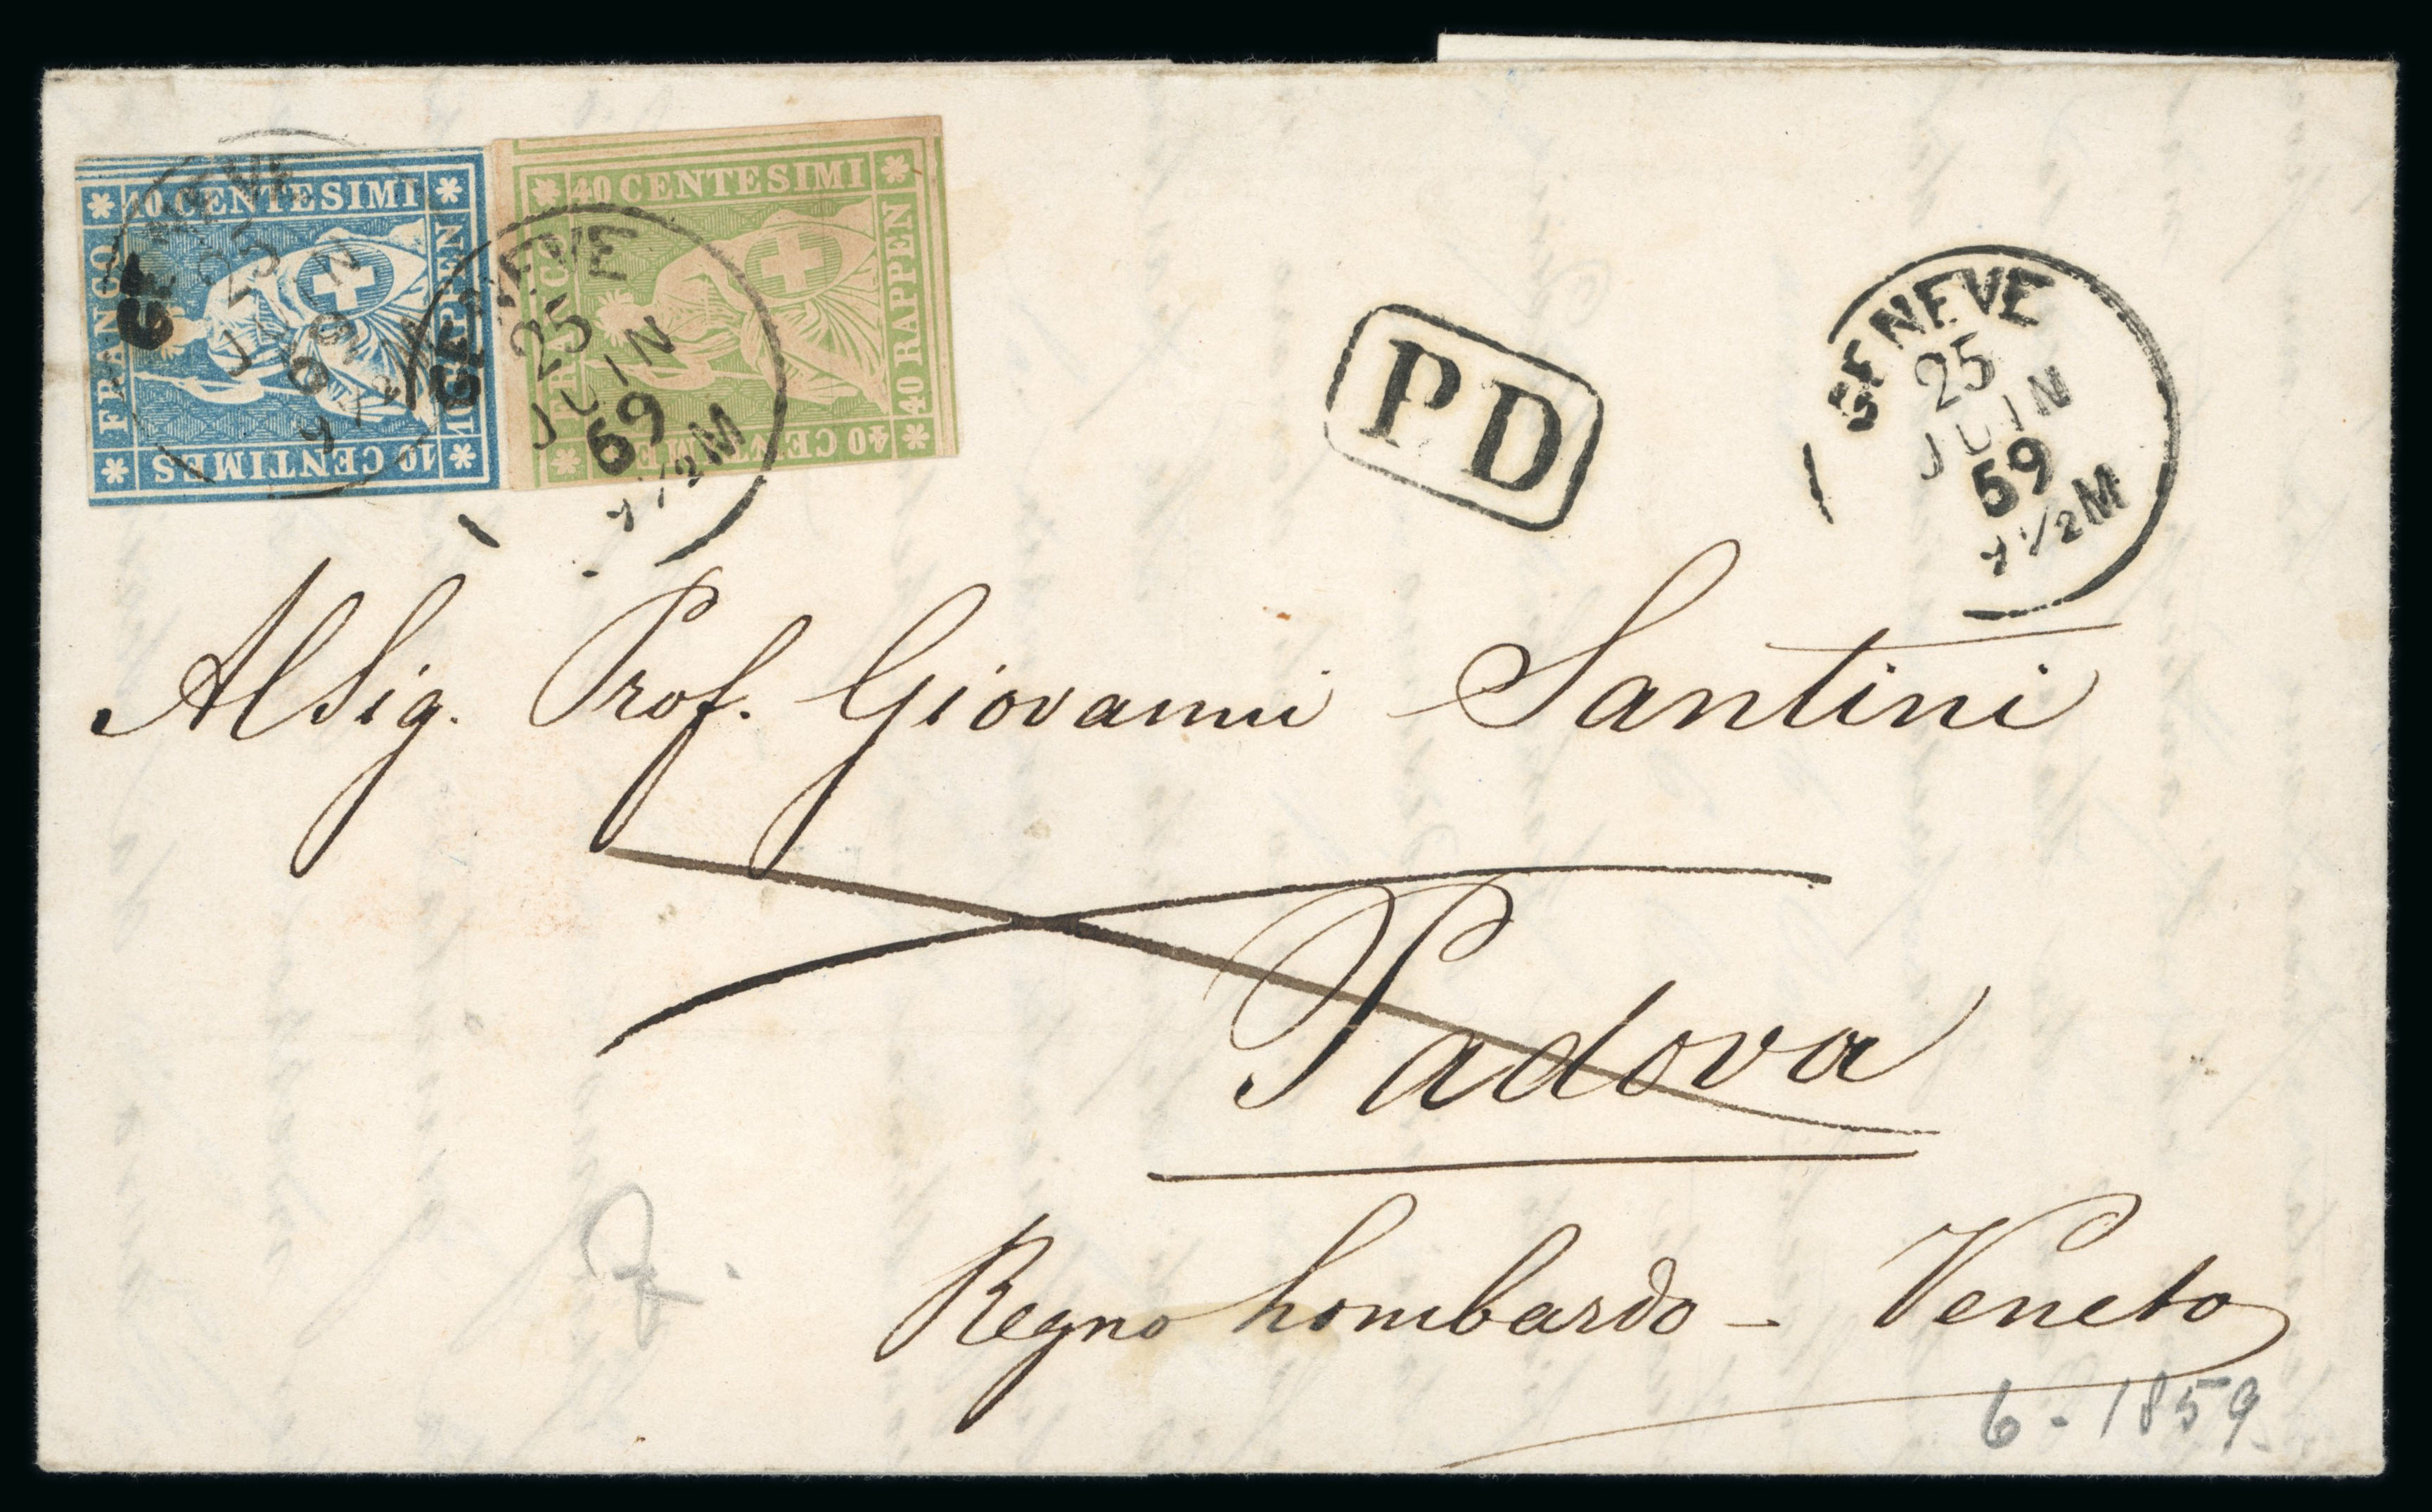 10 CENTESIMI
FRANCO
10 RAPPEN
10 CENTIMES
40 CENTESIMI
FRANCO
40 RAPPEN
40 CENTIMES
GENEVE
25
JUIN
59
GENEVE
25
JUIN
59
½M
PD
GENEVE
25
JUIN
59
½M
Al Sig. Prof. Giovanni Santini
Padova
Regno Lombardo - Veneto
6-1859